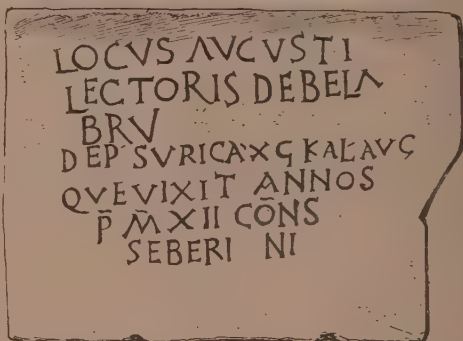 LOCVS AVCVSTI
LECTORIS DEBELA
BRV
DEP SVRICA XϚ KAL AVG
QVEVIXIT ANNOS
P̄ M̄ XII CŌNS
SEBERI NI